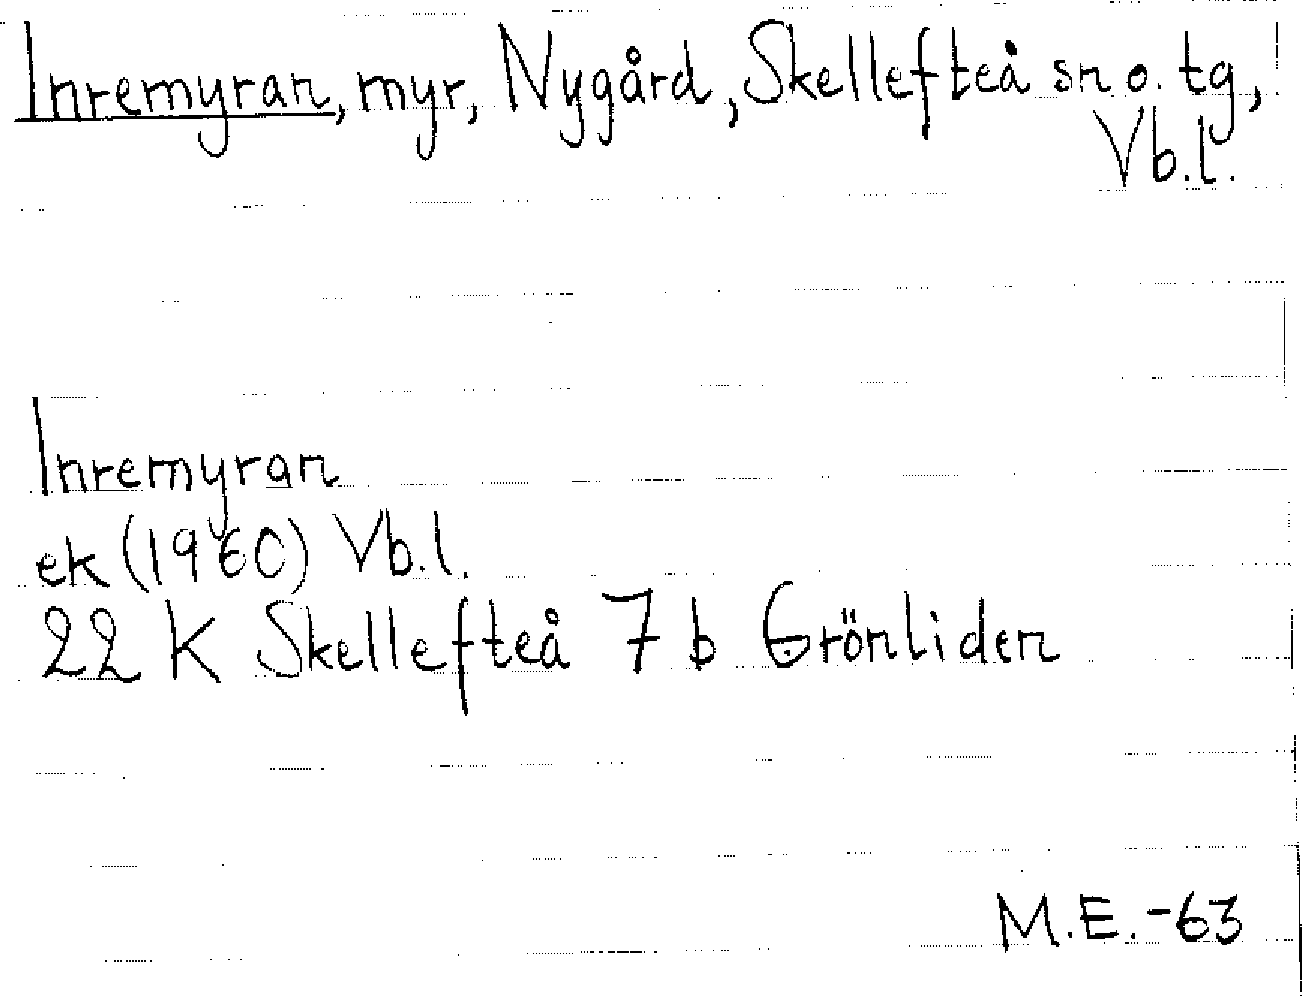 Inremyran, myr, Nygård, Skellefteå sn o. tg,
Vb.l.
Inremyran
ek (1960) Vb.l.
22 K Skellefteå 7 b Grönliden
M.E.-63